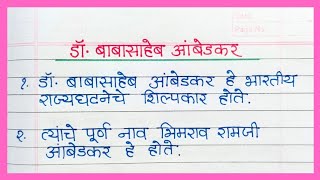 डॉ. बाबासाहेब आंबेडकर
१. डॉ. बाबासाहेब आंबेडकर हे भारतीय
राज्यघटनेचे शिल्पकार होते.
२. त्यांचे पूर्ण नाव भिमराव रामजी
आंबेडकर हे होते.